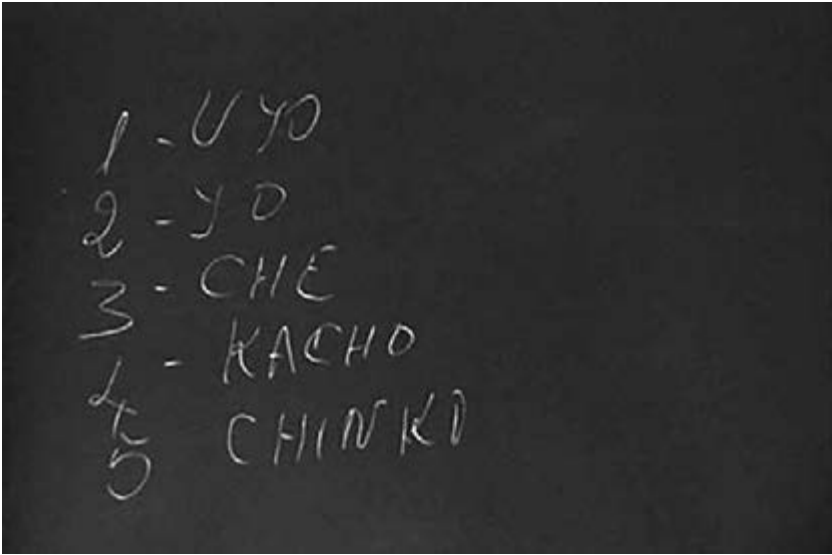 1 - UYO
2 - YO
3 - CHE
4 - KACHO
5 CHINKO